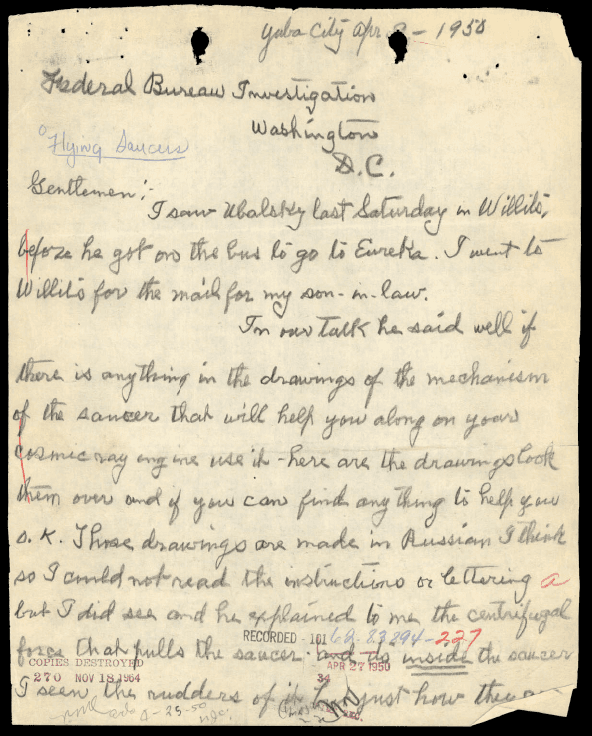 Yuba City Apr - 1950
Federal Bureau Investigation
Washington
D.C.
Flying Saucers
Gentlemen:-
I saw Ubalsky last Saturday in Willits,
before he got on the bus to go to Eureka. I went to
Willits for the mail for my son-in-law.
In our talk he said well if
there is anything in the drawings of the mechanism
of the saucer that will help you along on your
cosmic ray engine use it - here are the drawings look
them over and if you can find any thing to help you
O.K. Those drawings are made in Russian I think
so I could not read the instructions or lettering
but I did see and he explained to me the centrifugal
RECORDED - 101 62-83894-227
force that pulls the saucer and is inside the saucer
COPIES DESTROYED
270 NOV 18 1964
APR 27 1950
34
I seen the rudders of it just how they
4-25-50